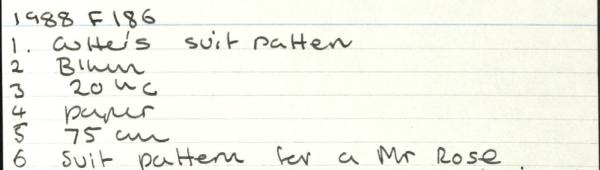 1988 F 186
1. Cutter's suit patten
2 B'ham
3 20th C
4 paper
5 75 cm
6 Suit pattern for a Mr Rose